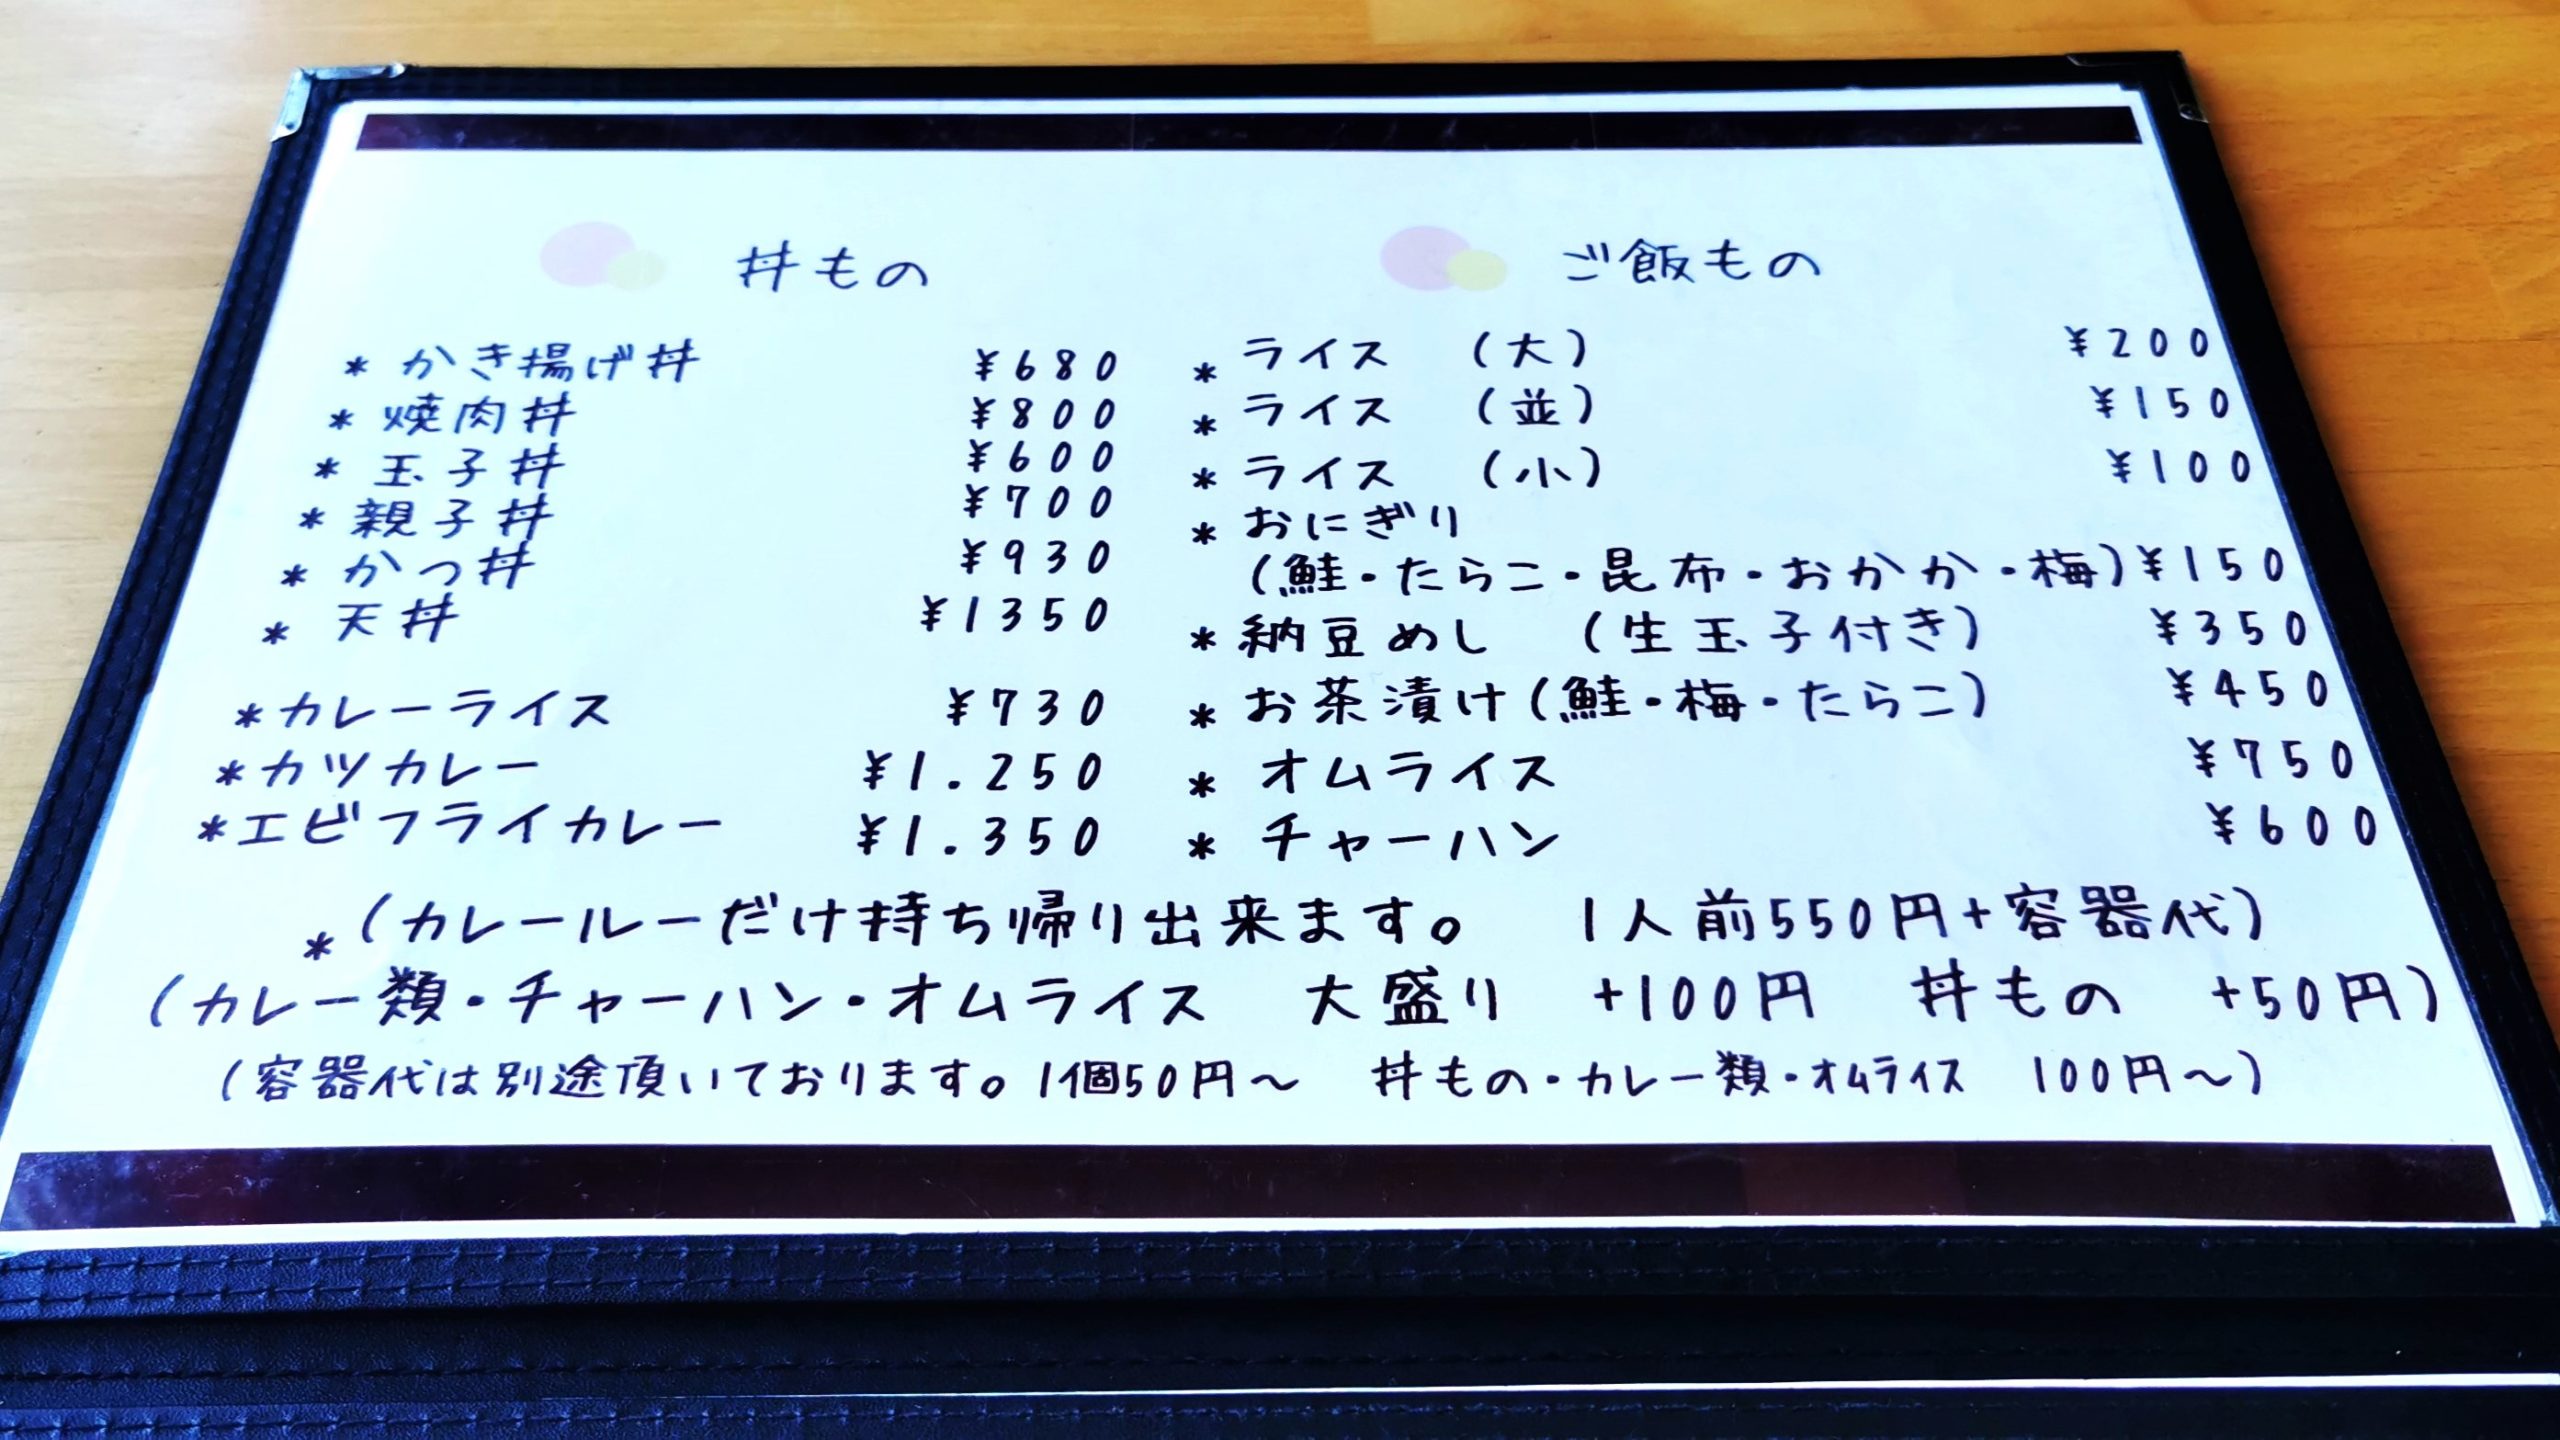 丼もの
* かき揚げ丼 ¥680
* 焼肉丼 ¥800
* 玉子丼 ¥600
* 親子丼 ¥700
* かつ丼 ¥930
* 天丼 ¥1350
* カレーライス ¥730
* カツカレー ¥1.250
* エビフライカレー ¥1.350
ご飯もの
* ライス (大) ¥200
* ライス (並) ¥150
* ライス (小) ¥100
* おにぎり
(鮭・たらこ・昆布・おかか・梅) ¥150
* 納豆めし (生玉子付き) ¥350
* お茶漬け(鮭・梅・たらこ) ¥450
* オムライス ¥750
* チャーハン ¥600
* (カレールーだけ持ち帰り出来ます。 1人前550円+容器代)
(カレー類・チャーハン・オムライス 大盛り +100円 丼もの +50円)
(容器代は別途頂いております。1個50円〜 丼もの・カレー類・オムライス 100円〜)